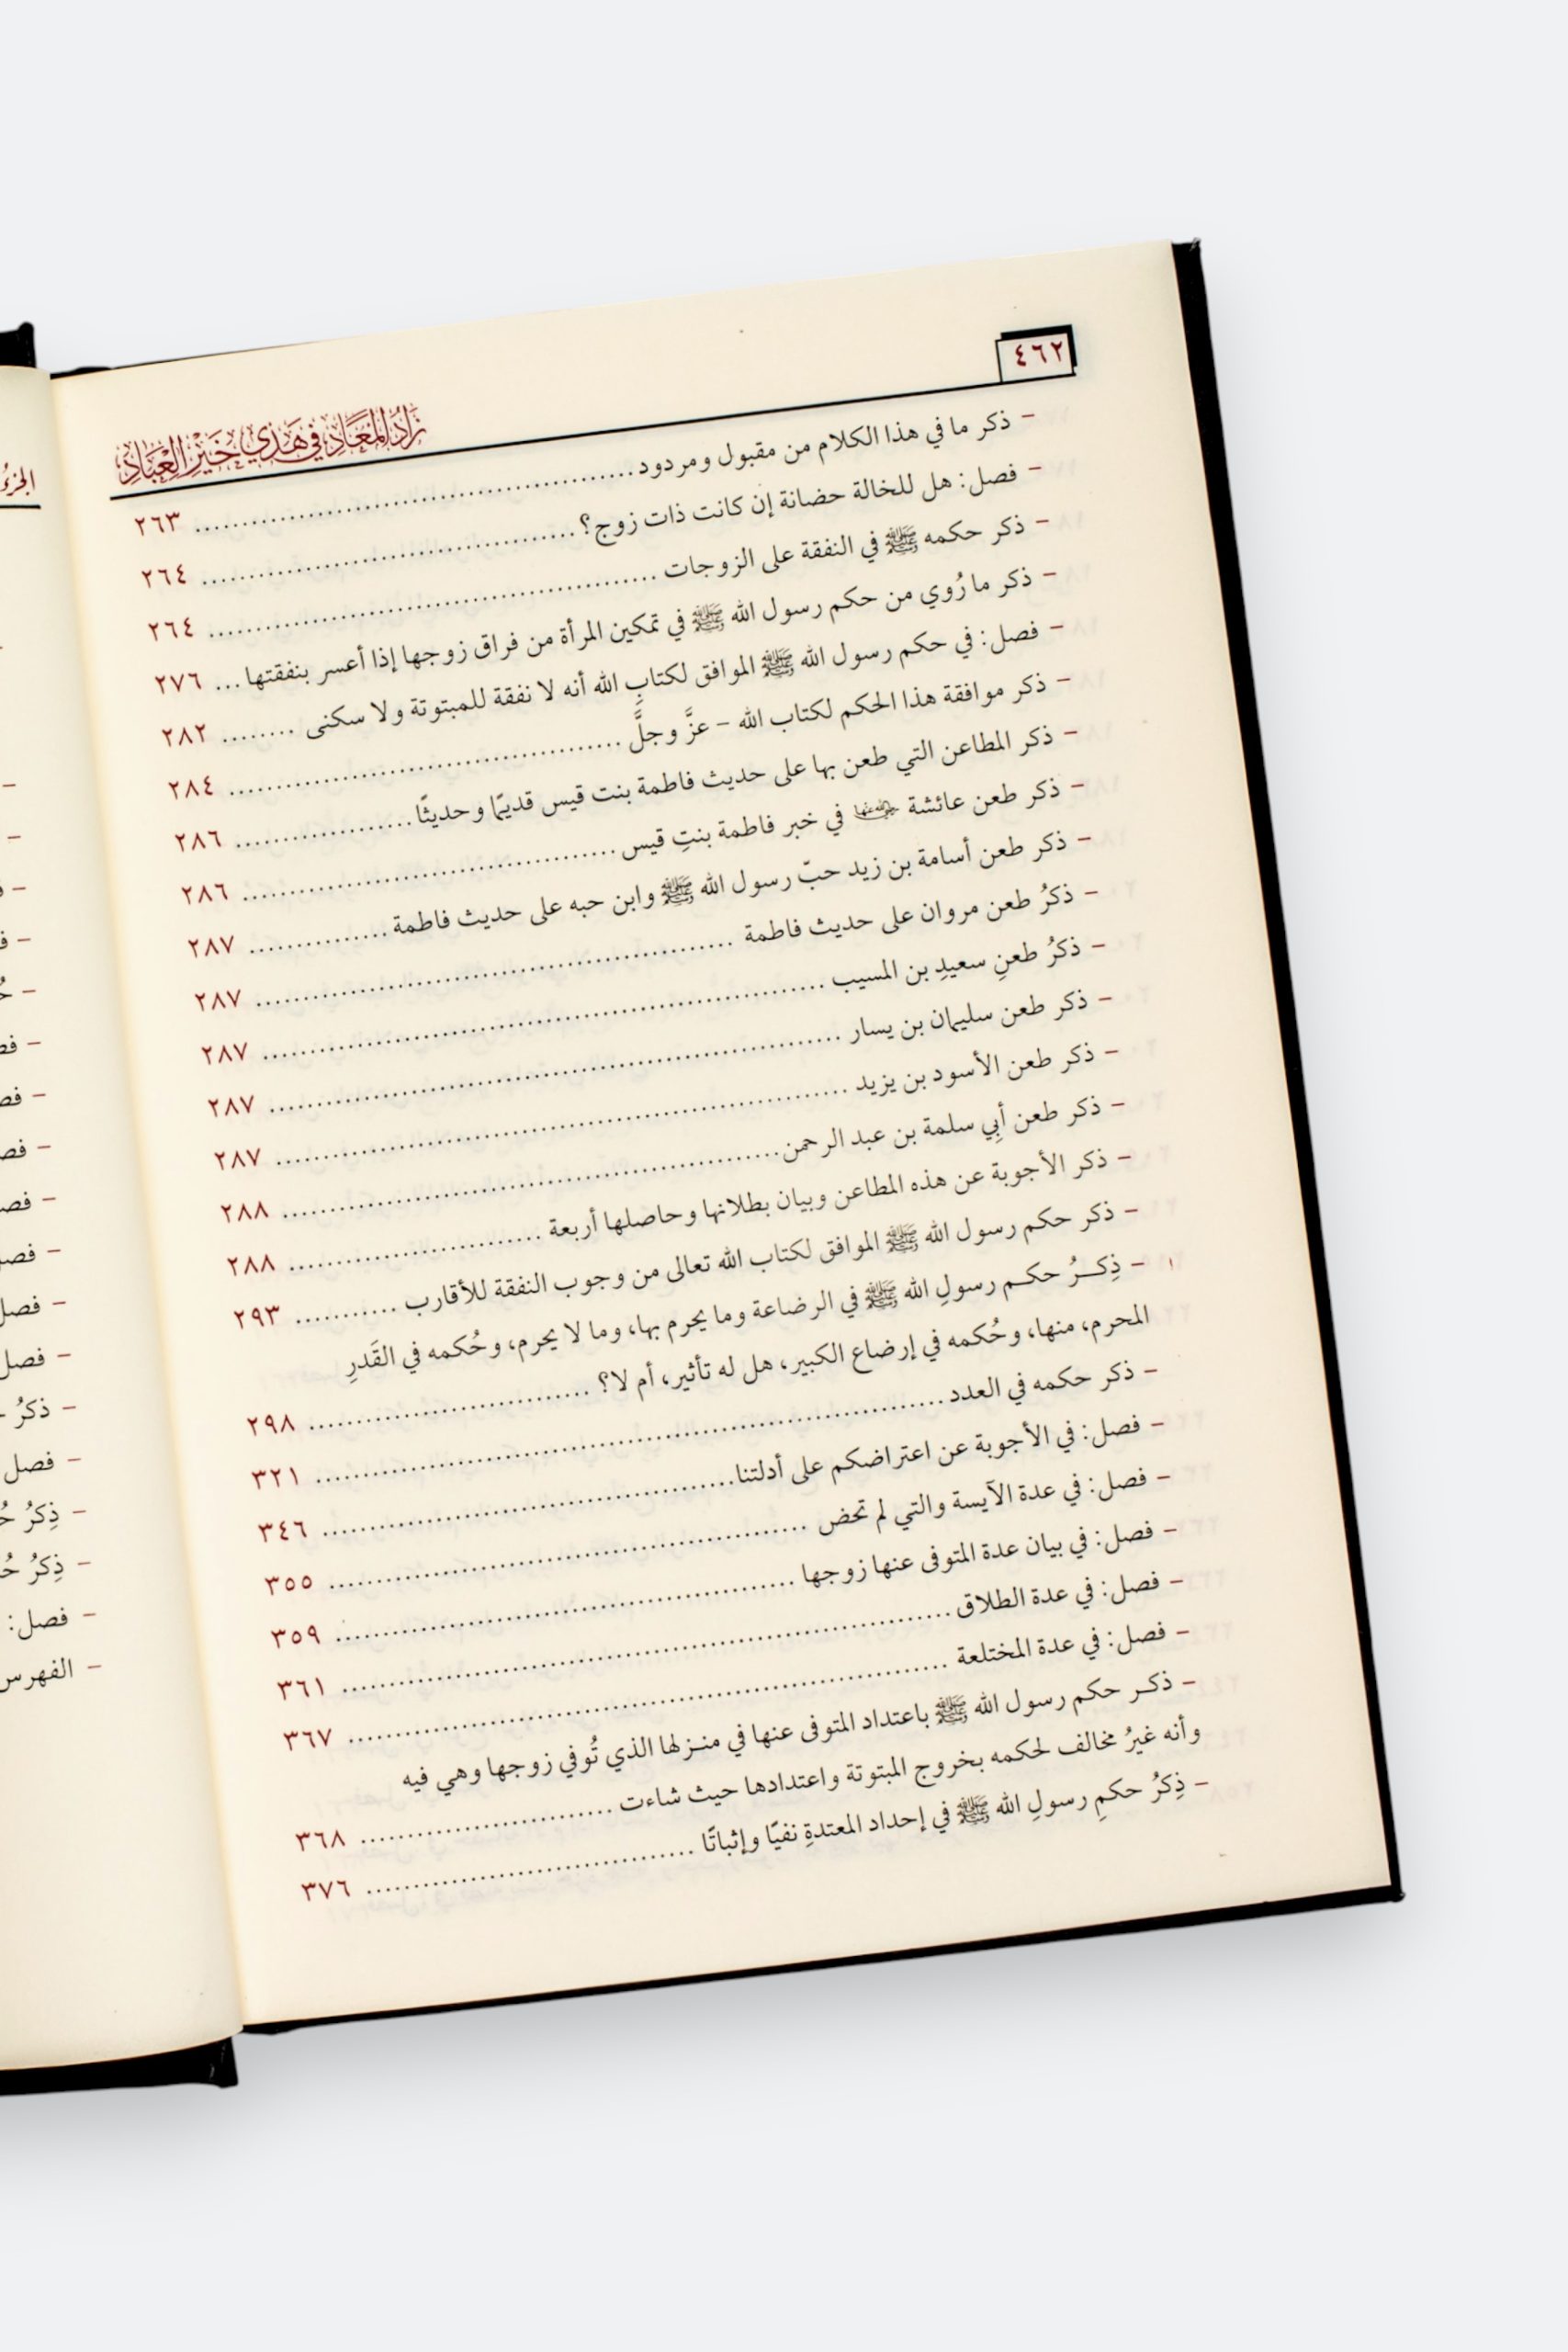 ٤٦٢
زَادُ المَعَادِ فِي هَدْيِ خَيْرِ العِبَادِ
– ذكر ما في هذا الكلام من مقبول ومردود ........ ٢٦٣
– فصل: هل للخالة حضانة إن كانت ذات زوج؟ ........ ٢٦٤
– ذكر حكمه ﷺ في النفقة على الزوجات ........ ٢٦٤
– ذكر ما رُوي من حكم رسول الله ﷺ في تمكين المرأة من فراق زوجها إذا أعسر بنفقتها ... ٢٧٦
– فصل: في حكم رسول الله ﷺ الموافق لكتابِ الله أنه لا نفقة للمبتوتة ولا سكنى ........ ٢٨٢
– ذكر موافقة هذا الحكم لكتاب الله – عزَّ وجلَّ ........ ٢٨٤
– ذكر المطاعن التي طعن بها على حديث فاطمة بنت قيس قديمًا وحديثًا ........ ٢٨٦
– ذكر طعن عائشة رضي الله عنها في خبر فاطمة بنتِ قيس ........ ٢٨٦
– ذكر طعن أسامة بن زيد حبّ رسول الله ﷺ وابن حبه على حديث فاطمة ........ ٢٨٧
– ذكرُ طعن مروان على حديث فاطمة ........ ٢٨٧
– ذكرُ طعنِ سعيدِ بن المسيب ........ ٢٨٧
– ذكر طعن سليمان بن يسار ........ ٢٨٧
– ذكر طعن الأسود بن يزيد ........ ٢٨٧
– ذكر طعن أبِي سلمة بن عبد الرحمن ........ ٢٨٨
– ذكر الأجوبة عن هذه المطاعن وبيان بطلانها وحاصلها أربعة ........ ٢٨٨
– ذكر حكم رسول الله ﷺ الموافق لكتاب الله تعالى من وجوب النفقة للأقارب ........ ٢٩٣
– ذِكرُ حكم رسولِ الله ﷺ في الرضاعة وما يحرم بها، وما لا يحرم، وحُكمه في القَدرِ
المحرم، منها، وحُكمه في إرضاع الكبير، هل له تأثير، أم لا؟ ........ ٢٩٨
– ذكر حكمه في العدد ........ ٣٢١
– فصل: في الأجوبة عن اعتراضكم على أدلتنا ........ ٣٤٦
– فصل: في عدة الآيسة والتي لم تحض ........ ٣٥٥
– فصل: في بيان عدة المتوفى عنها زوجها ........ ٣٥٩
– فصل: في عدة الطلاق ........ ٣٦١
– فصل: في عدة المختلعة ........ ٣٦٧
– ذكر حكم رسول الله ﷺ باعتداد المتوفى عنها في منزلها الذي تُوفي زوجها وهي فيه
وأنه غيرُ مخالف لحكمه بخروج المبتوتة واعتدادها حيث شاءت ........ ٣٦٨
– ذِكرُ حكمِ رسولِ الله ﷺ في إحداد المعتدةِ نفيًا وإثباتًا ........ ٣٧٦
– فصل
– ذكرُ
– فصل
– ذِكرُ
– ذِكرُ
– فصل:
– الفهرس